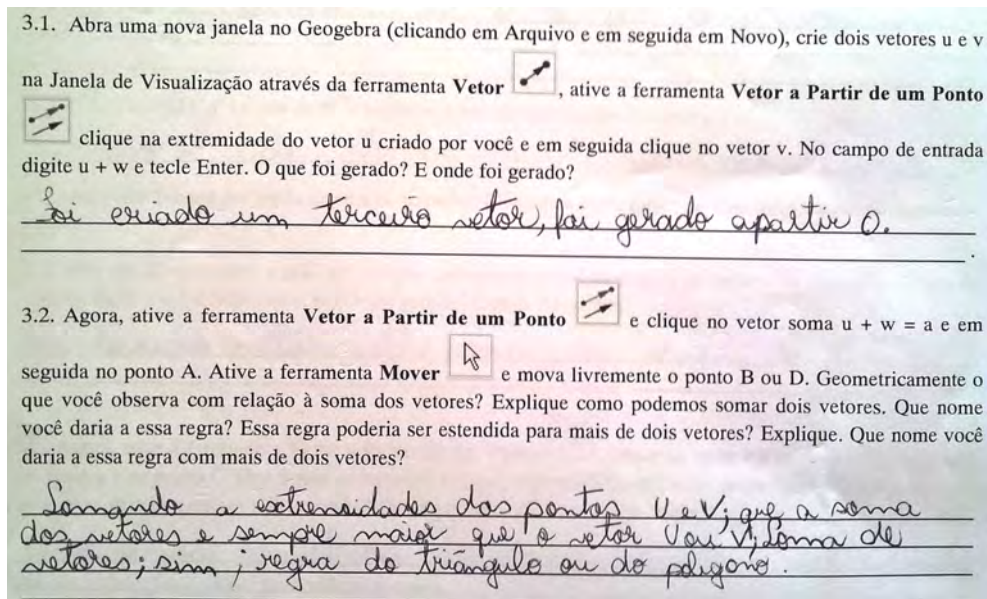 3.1. Abra uma nova janela no Geogebra (clicando em Arquivo e em seguida em Novo), crie dois vetores u e v
na Janela de Visualização através da ferramenta Vetor , ative a ferramenta Vetor a Partir de um Ponto
clique na extremidade do vetor u criado por você e em seguida clique no vetor v. No campo de entrada
digite u + w e tecle Enter. O que foi gerado? E onde foi gerado?
Foi criado um terceiro vetor, foi gerado apartir O.
3.2. Agora, ative a ferramenta Vetor a Partir de um Ponto e clique no vetor soma u + w = a e em
seguida no ponto A. Ative a ferramenta Mover e mova livremente o ponto B ou D. Geometricamente o
que você observa com relação à soma dos vetores? Explique como podemos somar dois vetores. Que nome
você daria a essa regra? Essa regra poderia ser estendida para mais de dois vetores? Explique. Que nome você
daria a essa regra com mais de dois vetores?
Somando a extremidades dos pontos U e V; que a soma
dos vetores e sempre maior que o vetor U ou V; soma de
vetores; sim; regra do triângulo ou do poligono.